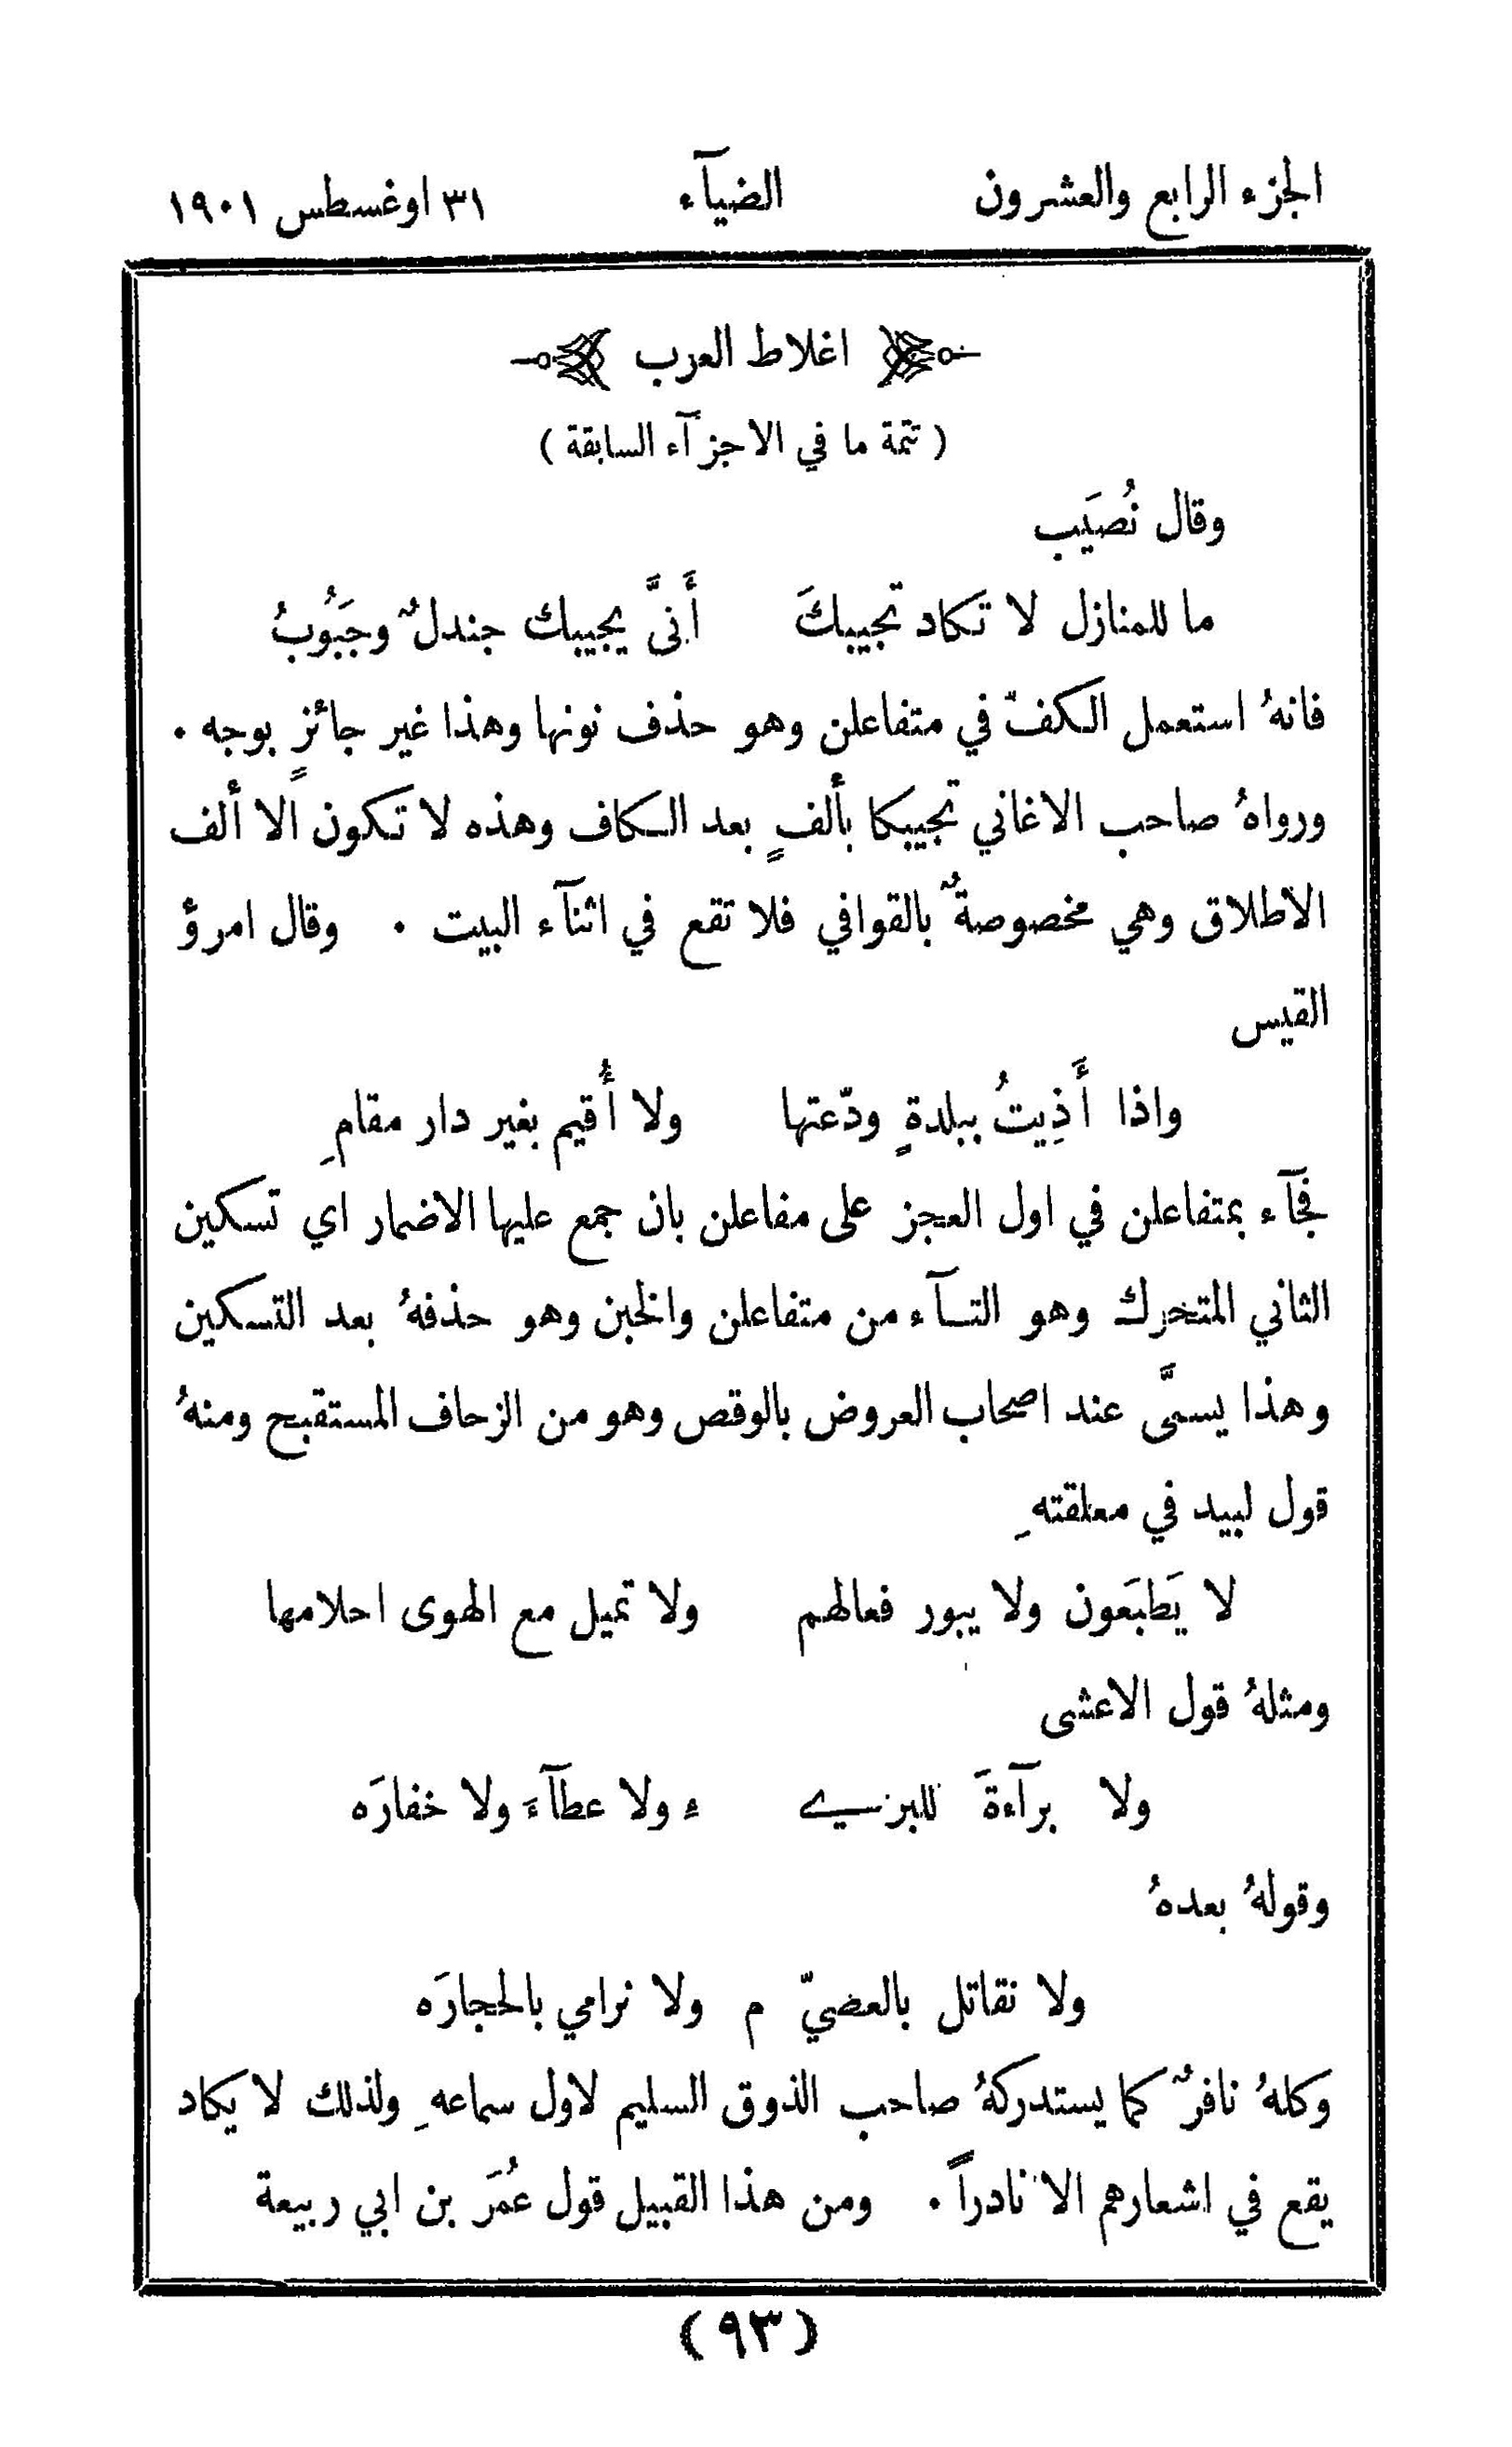 الجزء الرابع والعشرون الضيآء ٣١ اوغسطس ١٩٠١
اغلاط العرب
( تتمة ما في الاجزآء السابقة )
وقال نُصَيَب
ما للمنازل لا تكاد تجيبكَ أَنىَّ يجيبك جندلٌ وجَبُوبُ
فانهُ استعمل الكفّ في متفاعلن وهو حذف نونها وهذا غير جائزٍ بوجه .
ورواهُ صاحب الاغاني تجيبكا بأَلفٍ بعد الكاف وهذه لا تكون الا أَلف
الاطلاق وهي مخصوصةٌ بالقوافي فلا تقع في اثنآء البيت . وقال امرؤ
القيس
واذا أَذِيتُ ببلدةٍ ودّعتها ولا أُقيم بغير دار مقامِ
فجآء بمتفاعلن في اول العجز على مفاعلن بان جمع عليها الاضمار اي تسكين
الثاني المتحرك وهو التآء من متفاعلن والخبن وهو حذفهُ بعد التسكين
وهذا يسمَّى عند اصحاب العروض بالوقص وهو من الزحاف المستقبح ومنهُ
قول لبيد في معلقتهِ
لا يَطبَعون ولا يبور فعالهم ولا تميل مع الهوى احلامها
ومثلهُ قول الاعشى
ولا برآءةَ للبرَي ء ولا عطآءَ ولا خفارَه
وقولهُ بعدهُ
ولا نقاتل بالعضيّ م ولا نرامي بالحجارَه
وكلهُ نافرٌ كما يستدركهُ صاحب الذوق السليم لاول سماعهِ ولذلك لا يكاد
يقع في اشعارهم الا نادراً . ومن هذا القبيل قول عُمَر بن ابي ربيعة
(٩٣)